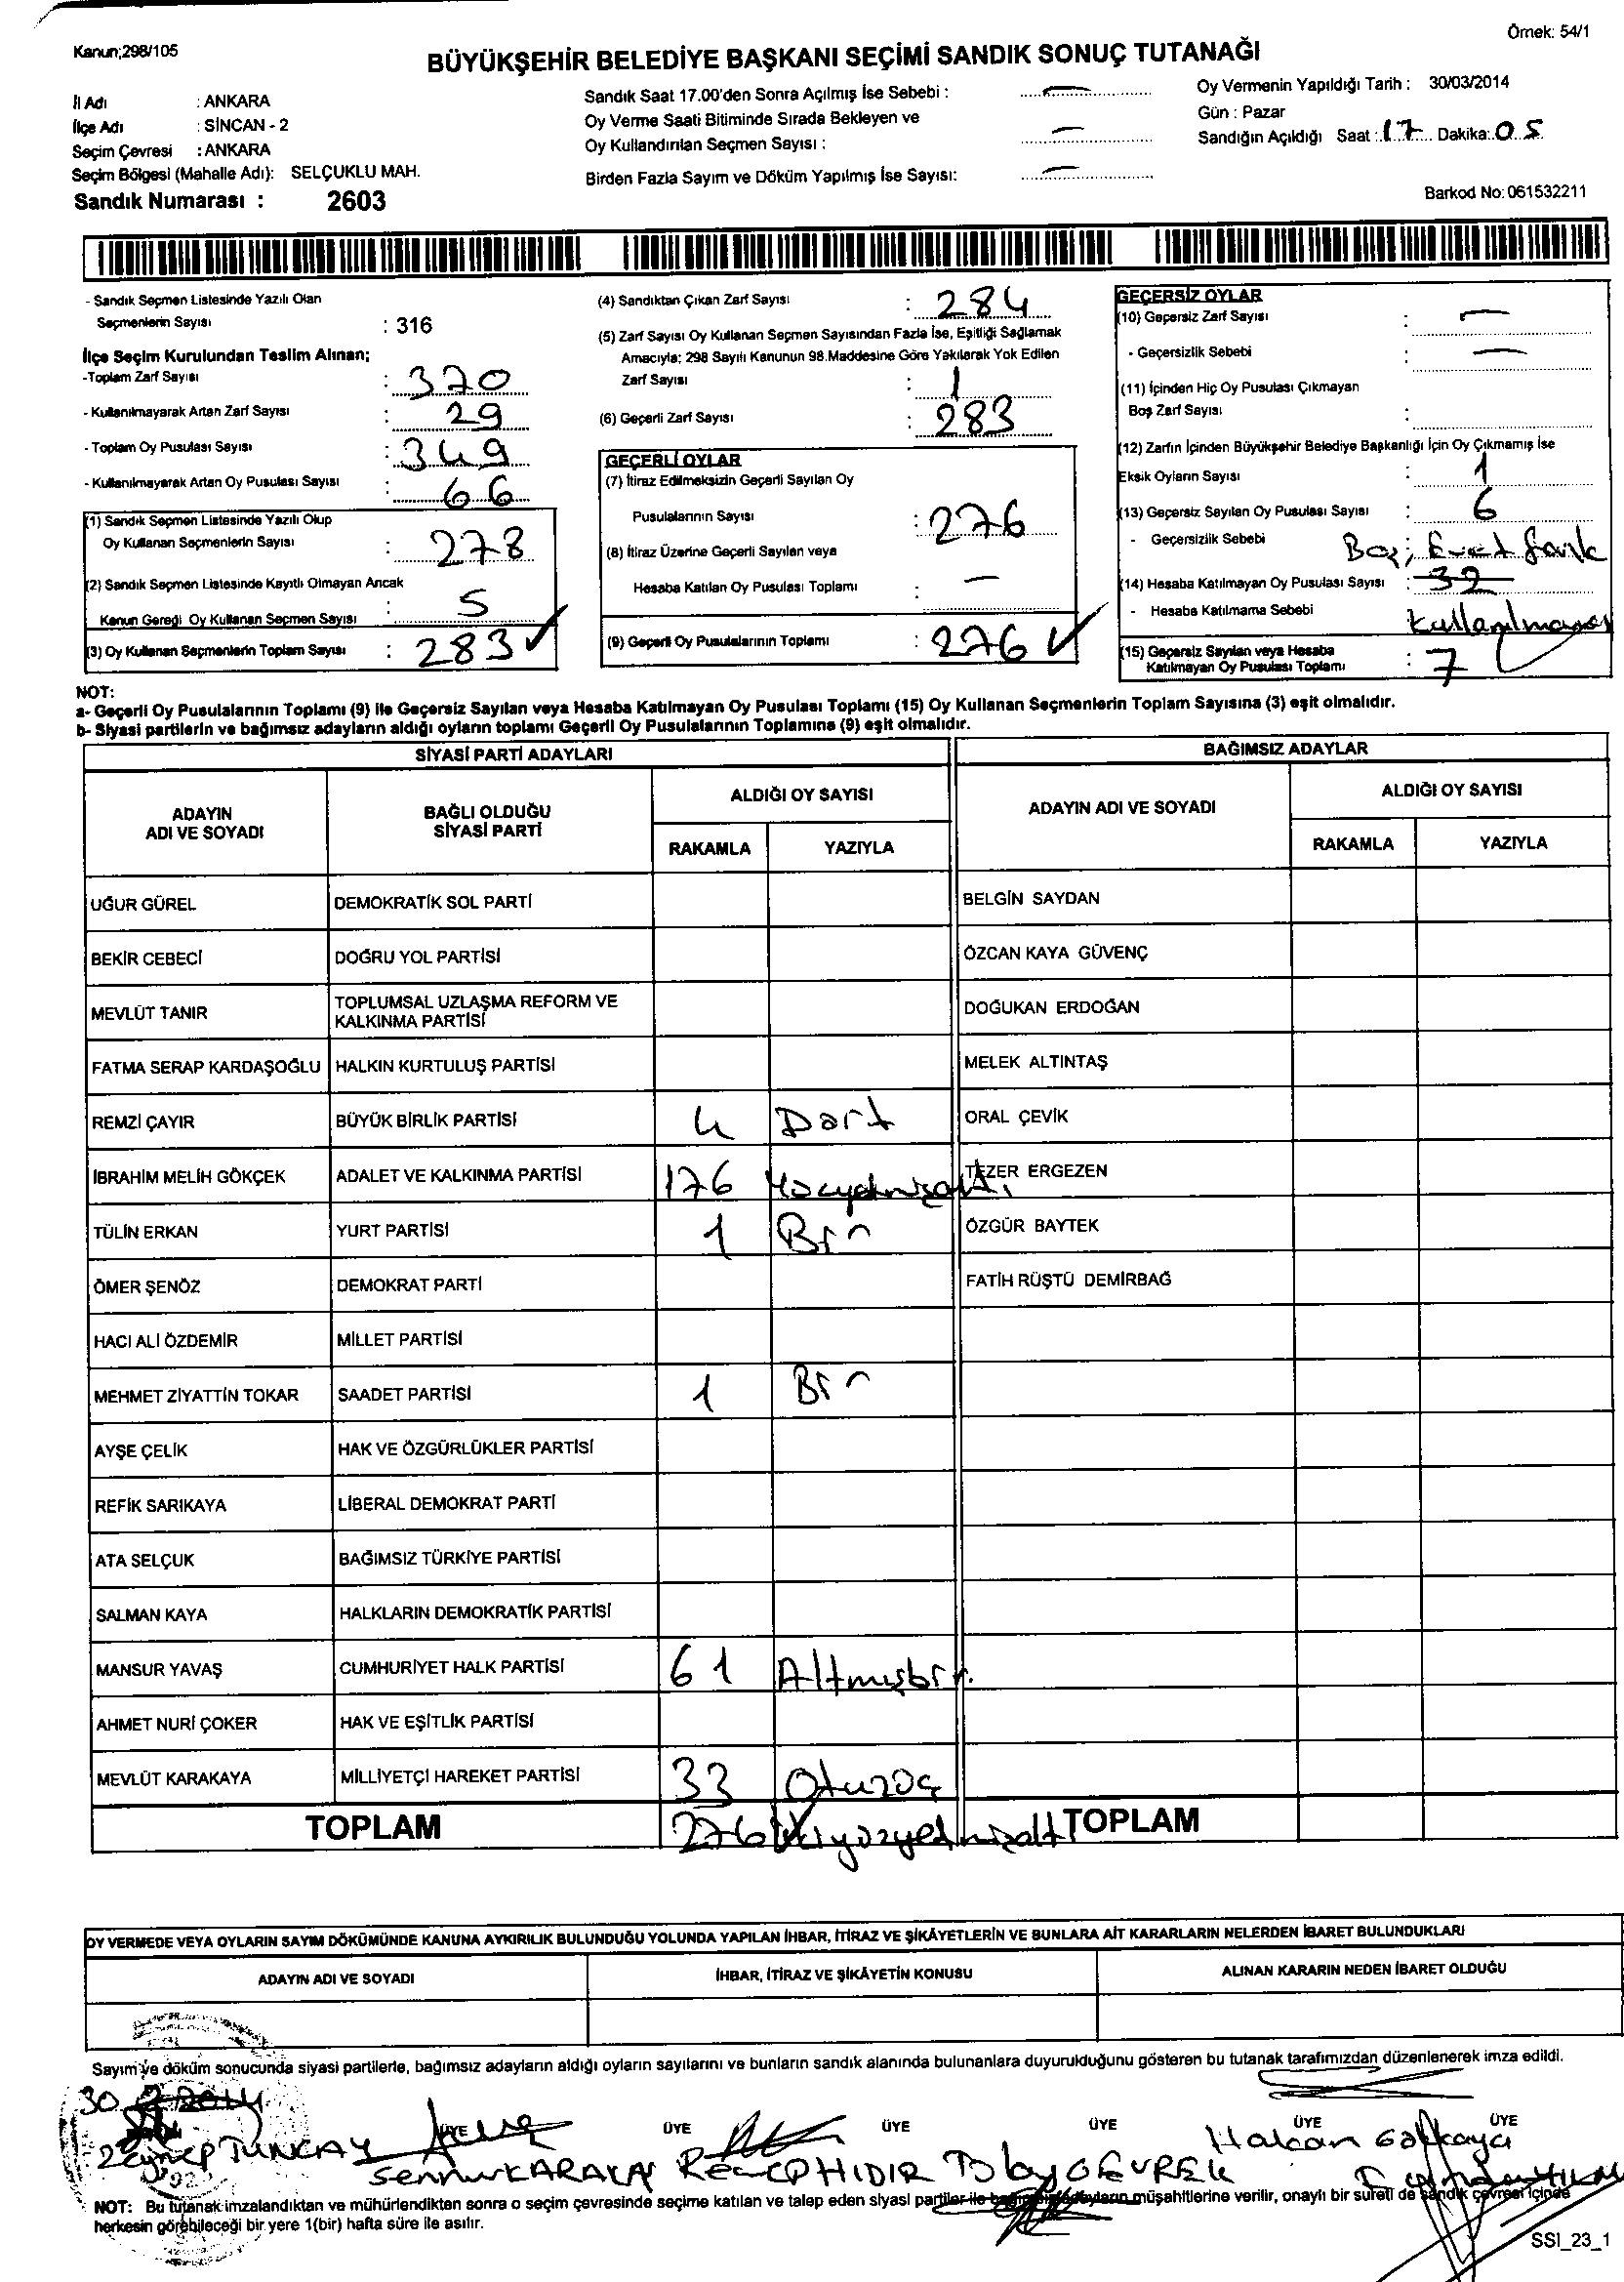 Kanun;298/105
Örnek: 54/1
BÜYÜKŞEHİR BELEDİYE BAŞKANI SEÇİMİ SANDIK SONUÇ TUTANAĞI
İl Adı : ANKARA
İlçe Adı : SİNCAN - 2
Seçim Çevresi : ANKARA
Seçim Bölgesi (Mahalle Adı): SELÇUKLU MAH.
Sandık Numarası : 2603
Sandık Saat 17.00'den Sonra Açılmış İse Sebebi : —
Oy Verme Saati Bitiminde Sırada Bekleyen ve
Oy Kullandırılan Seçmen Sayısı : —
Birden Fazla Sayım ve Döküm Yapılmış İse Sayısı: —
Oy Vermenin Yapıldığı Tarih : 30/03/2014
Gün : Pazar
Sandığın Açıldığı Saat : 17 Dakika: 05
Barkod No: 061532211
- Sandık Seçmen Listesinde Yazılı Olan
Seçmenlerin Sayısı : 316
İlçe Seçim Kurulundan Teslim Alınan;
-Toplam Zarf Sayısı : 370
- Kullanılmayarak Artan Zarf Sayısı : 29
- Toplam Oy Pusulası Sayısı : 349
- Kullanılmayarak Artan Oy Pusulası Sayısı : 66
(1) Sandık Seçmen Listesinde Yazılı Olup
Oy Kullanan Seçmenlerin Sayısı : 278
(2) Sandık Seçmen Listesinde Kayıtlı Olmayan Ancak
Kanun Gereği Oy Kullanan Seçmen Sayısı : 5
(3) Oy Kullanan Seçmenlerin Toplam Sayısı : 283 ✓
(4) Sandıktan Çıkan Zarf Sayısı : 284
(5) Zarf Sayısı Oy Kullanan Seçmen Sayısından Fazla İse, Eşitliği Sağlamak
Amacıyla; 298 Sayılı Kanunun 98.Maddesine Göre Yakılarak Yok Edilen
Zarf Sayısı : 1
(6) Geçerli Zarf Sayısı : 283
GEÇERLİ OYLAR
(7) İtiraz Edilmeksizin Geçerli Sayılan Oy
Pusulalarının Sayısı : 276
(8) İtiraz Üzerine Geçerli Sayılan veya
Hesaba Katılan Oy Pusulası Toplamı : —
(9) Geçerli Oy Pusulalarının Toplamı : 276 ✓
GEÇERSİZ OYLAR
(10) Geçersiz Zarf Sayısı : —
- Geçersizlik Sebebi : —
(11) İçinden Hiç Oy Pusulası Çıkmayan
Boş Zarf Sayısı :
(12) Zarfın İçinden Büyükşehir Belediye Başkanlığı İçin Oy Çıkmamış İse
Eksik Oyların Sayısı : 1
(13) Geçersiz Sayılan Oy Pusulası Sayısı : 6
- Geçersizlik Sebebi Boş, Evet
(14) Hesaba Katılmayan Oy Pusulası Sayısı : 32
- Hesaba Katılmama Sebebi
(15) Geçersiz Sayılan veya Hesaba
Katılmayan Oy Pusulası Toplamı : 7
NOT:
a- Geçerli Oy Pusulalarının Toplamı (9) ile Geçersiz Sayılan veya Hesaba Katılmayan Oy Pusulası Toplamı (15) Oy Kullanan Seçmenlerin Toplam Sayısına (3) eşit olmalıdır.
b- Siyasi partilerin ve bağımsız adayların aldığı oyların toplamı Geçerli Oy Pusulalarının Toplamına (9) eşit olmalıdır.
SİYASİ PARTİ ADAYLARI
BAĞIMSIZ ADAYLAR
ADAYIN
ADI VE SOYADI
BAĞLI OLDUĞU
SİYASİ PARTİ
ALDIĞI OY SAYISI
RAKAMLA YAZIYLA
ADAYIN ADI VE SOYADI
ALDIĞI OY SAYISI
RAKAMLA YAZIYLA
UĞUR GÜREL DEMOKRATİK SOL PARTİ BELGİN SAYDAN
BEKİR CEBECİ DOĞRU YOL PARTİSİ ÖZCAN KAYA GÜVENÇ
MEVLÜT TANIR TOPLUMSAL UZLAŞMA REFORM VE
KALKINMA PARTİSİ DOĞUKAN ERDOĞAN
FATMA SERAP KARDAŞOĞLU HALKIN KURTULUŞ PARTİSİ MELEK ALTINTAŞ
REMZİ ÇAYIR BÜYÜK BİRLİK PARTİSİ 4 Dört ORAL ÇEVİK
İBRAHİM MELİH GÖKÇEK ADALET VE KALKINMA PARTİSİ 176 Yüzyetmişaltı TEZER ERGEZEN
TÜLİN ERKAN YURT PARTİSİ 1 Bir ÖZGÜR BAYTEK
ÖMER ŞENÖZ DEMOKRAT PARTİ FATİH RÜŞTÜ DEMİRBAĞ
HACI ALİ ÖZDEMİR MİLLET PARTİSİ
MEHMET ZİYATTİN TOKAR SAADET PARTİSİ 1 Bir
AYŞE ÇELİK HAK VE ÖZGÜRLÜKLER PARTİSİ
REFİK SARIKAYA LİBERAL DEMOKRAT PARTİ
ATA SELÇUK BAĞIMSIZ TÜRKİYE PARTİSİ
SALMAN KAYA HALKLARIN DEMOKRATİK PARTİSİ
MANSUR YAVAŞ CUMHURİYET HALK PARTİSİ 61 Altmışbir.
AHMET NURİ ÇOKER HAK VE EŞİTLİK PARTİSİ
MEVLÜT KARAKAYA MİLLİYETÇİ HAREKET PARTİSİ 33 Otuzüç
TOPLAM 276 İkiyüzyetmişaltı TOPLAM
OY VERMEDE VEYA OYLARIN SAYIM DÖKÜMÜNDE KANUNA AYKIRILIK BULUNDUĞU YOLUNDA YAPILAN İHBAR, İTİRAZ VE ŞİKÂYETLERİN VE BUNLARA AİT KARARLARIN NELERDEN İBARET BULUNDUKLARI
ADAYIN ADI VE SOYADI İHBAR, İTİRAZ VE ŞİKÂYETİN KONUSU ALINAN KARARIN NEDEN İBARET OLDUĞU
Sayım ve döküm sonucunda siyasi partilerle, bağımsız adayların aldığı oyların sayılarını ve bunların sandık alanında bulunanlara duyurulduğunu gösteren bu tutanak tarafımızdan düzenlenerek imza edildi.
ÜYE ÜYE ÜYE ÜYE ÜYE ÜYE
Zeynep TUNCAY Recep HIDIR Hakan
NOT: Bu tutanak imzalandıktan ve mühürlendikten sonra o seçim çevresinde seçime katılan ve talep eden siyasi partiler ile bağımsız adayların müşahitlerine verilir, onaylı bir sureti de sandık çevresi içinde
herkesin görebileceği bir yere 1(bir) hafta süre ile asılır.
SSI_23_1